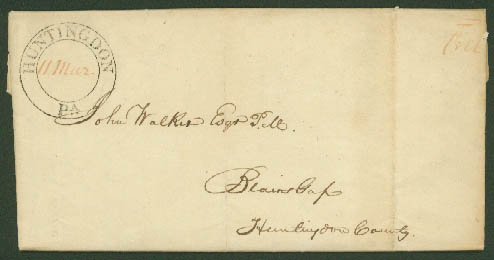 HUNTINGDON
11 Mar.
PA
John Walker Esqr P.M.
Blairs Gap
Huntingdon County.